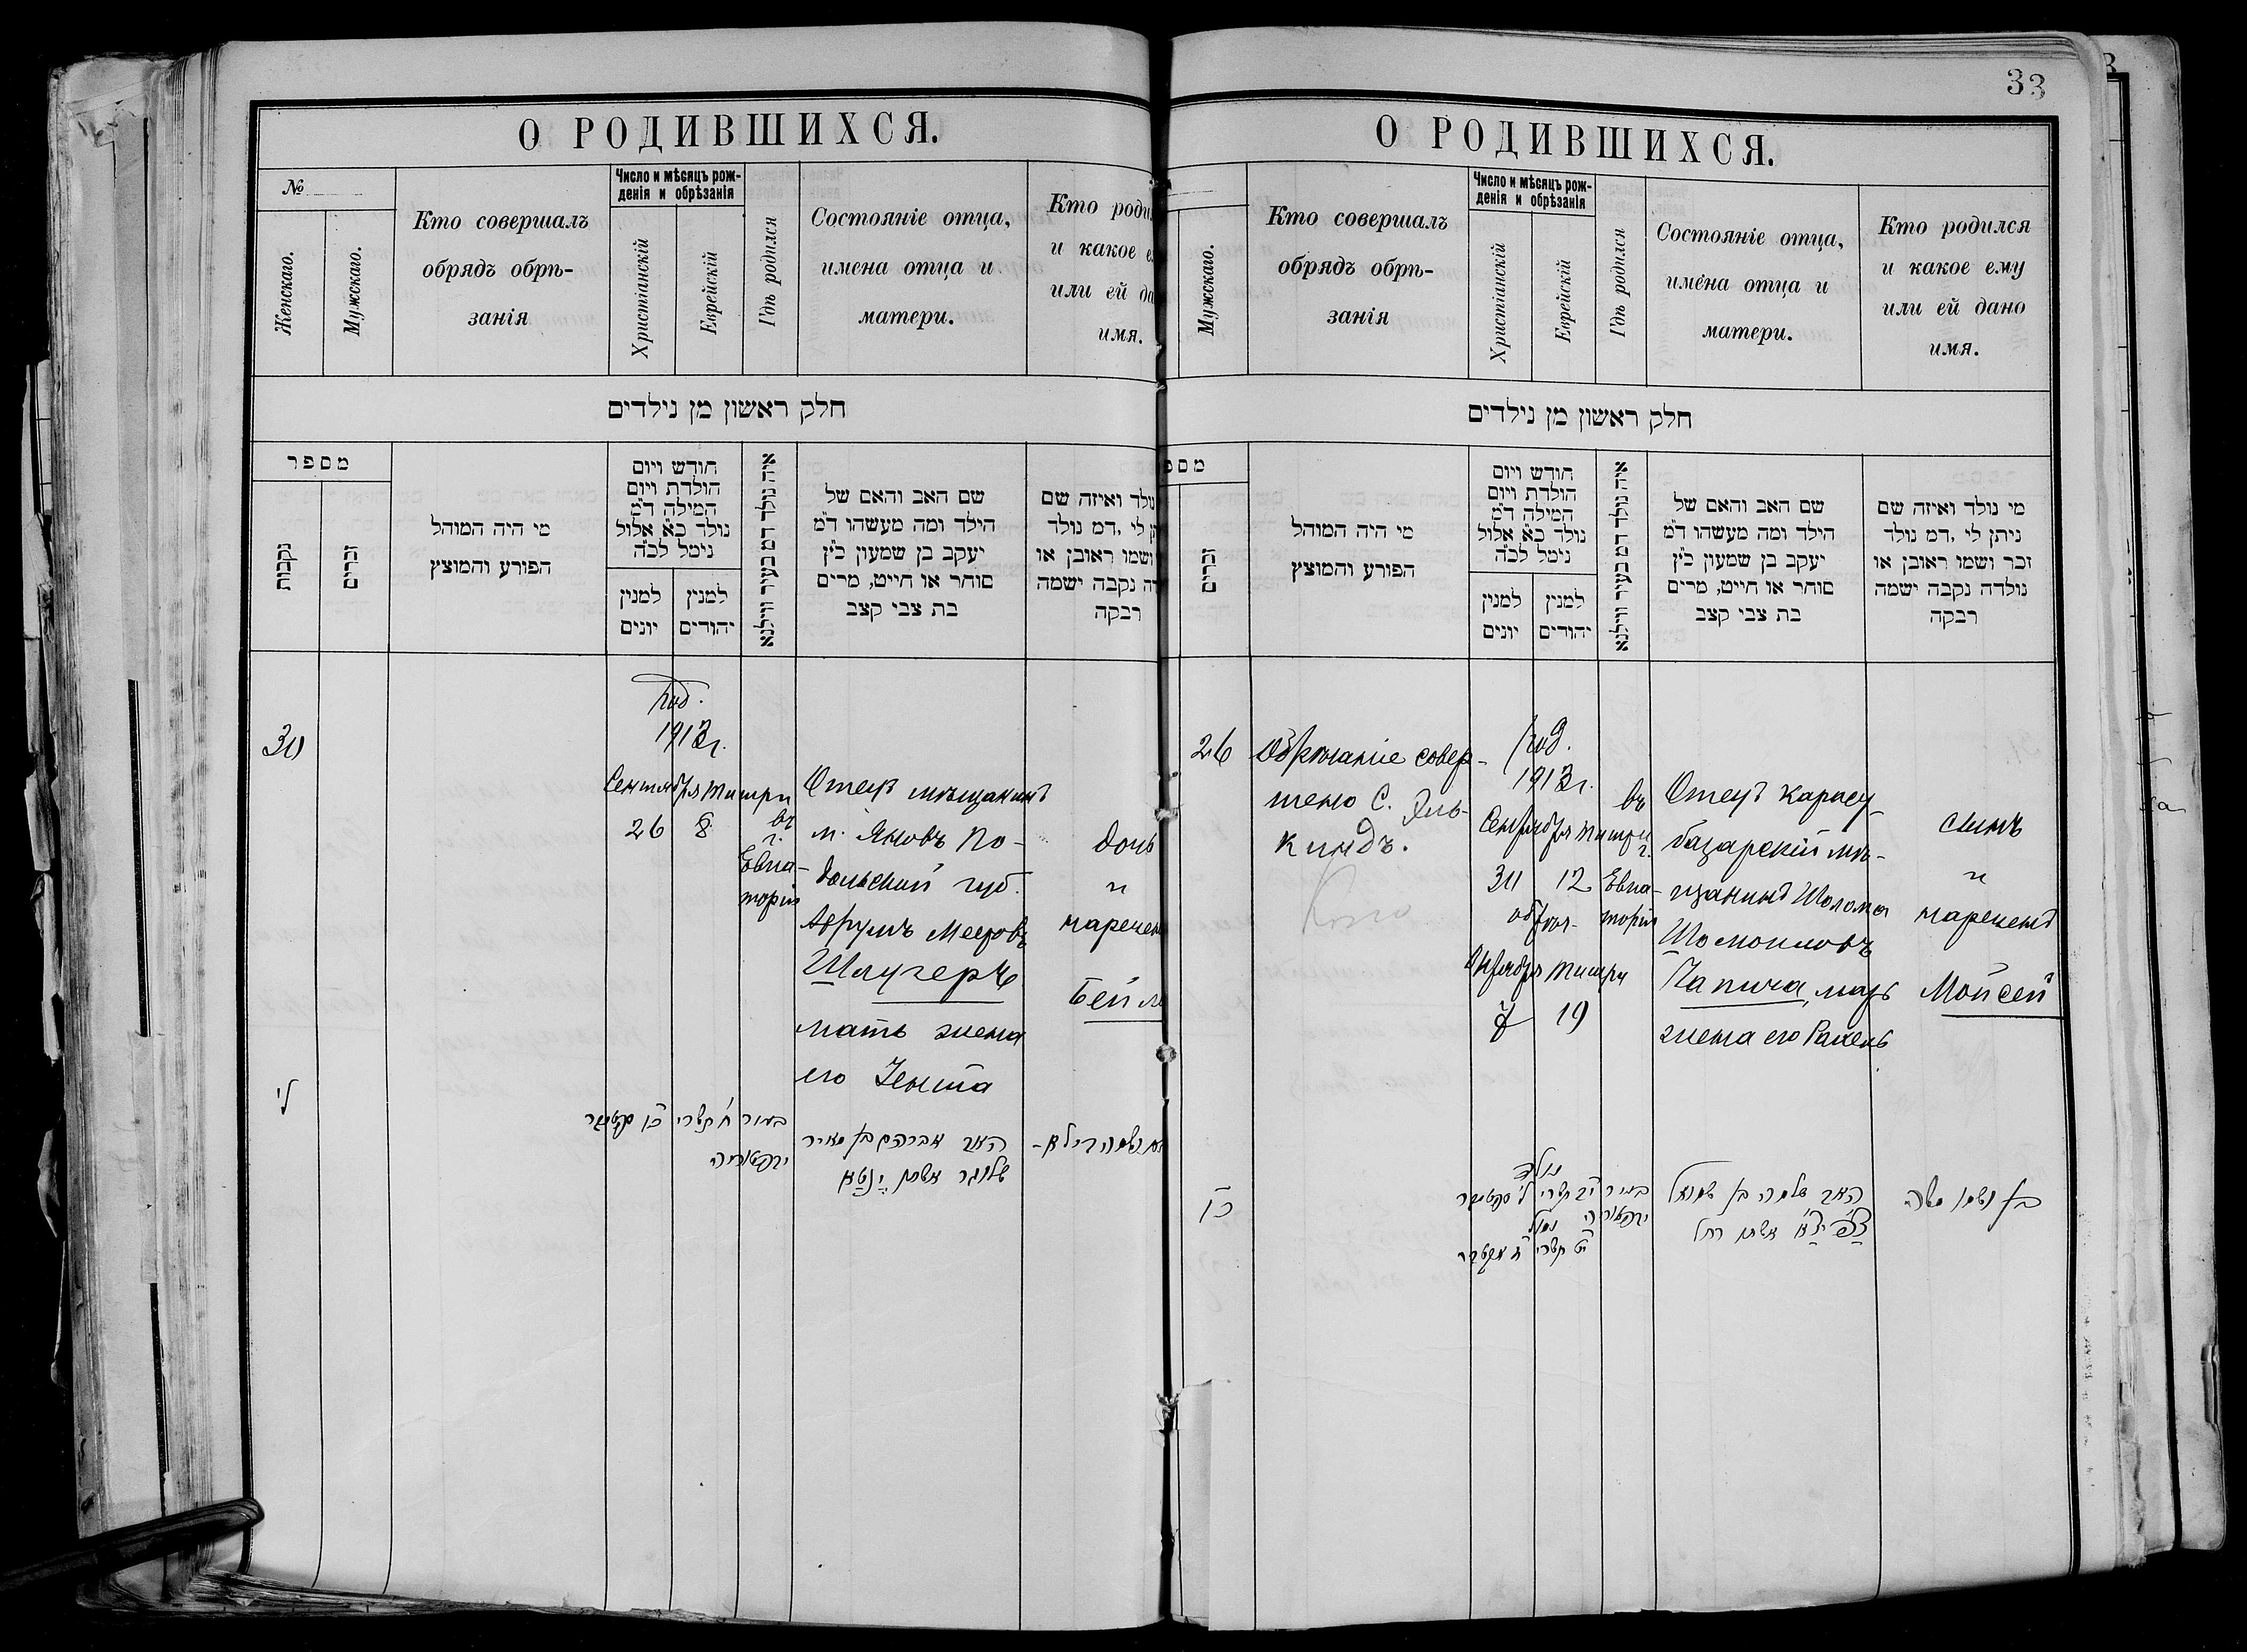 33
О РОДИВШИХСЯ.
№
Женскаго.
Мужскаго.
Кто совершалъ
обрядъ обрѣ-
занія
Число и мѣсяцъ рож-
денія и обрѣзанія
Христіанскій
Еврейскій
Гдѣ родился
Состояніе отца,
имена отца и
матери.
Кто роди
и какое е
или ей да
имя.
חלק ראשון מן נילדים
מספר
נקבות
זכרים
מי היה המוהל
הפורע והמוצץ
חודש ויום
הולדת ויום
המילה ד״מ
נולד כ״א אלול
נימל לכ״ה
למנין
יונים
למנין
יהודים
איה נולד דמ בעיר ווילנא
שם האב והאם של
הילד ומה מעשהו ד״מ
יעקב בן שמעון כ״ץ
סוחר או חייט, מרים
בת צבי קצב
נולד ואיזה שם
לי ,דמ נולד
ושמו ראובן או
נקבה ישמה
רבקה
30
род.
1913 г.
Сентября Тишри
26 8
въ
г.
Евпа-
торіи
Отецъ мѣщанинъ
м. Яновъ По-
дольской губ.
Аврумъ Мееровъ
Шлугеръ
мать жена
его Іента
дочь
и
наречен
Бейл
ל׳
בעיר ח׳ תשרי כ״ו סקטעבר
יבפטוריה
האב אברהם בן מאיר
שלוגר אשתו יֶנְטַא
ושמה ביילא-
О РОДИВШИХСЯ.
Мужскаго.
Кто совершалъ
обрядъ обрѣ-
занія
Число и мѣсяцъ рож-
денія и обрѣзанія
Христіанскій
Еврейскій
Гдѣ родился
Состояніе отца,
имена отца и
матери.
Кто родился
и какое ему
или ей дано
имя.
חלק ראשון מן נילדים
מספ
זכרים
מי היה המוהל
הפורע והמוצץ
חודש ויום
הולדת ויום
המילה ד״מ
נולד כ״א אלול
נימל לכ״ה
למנין
יונים
למנין
יהודים
איה נולד דמ בעיר ווילנא
שם האב והאם של
הילד ומה מעשהו ד״מ
יעקב בן שמעון כ״ץ
סוחר או חייט, מרים
בת צבי קצב
מי נולד ואיזה שם
ניתן לי ,דמ נולד
זכר ושמו ראובן או
נולדה נקבה ישמה
רבקה
26
Обрѣзаніе совер-
шено С. Эль-
киндъ.
род.
1913 г.
Сентября Тишри
30 12
обрѣз.
Октября Тишри
7 19
въ
г.
Евпа-
торіи
Отецъ карасу-
базарскій мѣ-
щанинъ Шолома
Шомоиловъ
Чапича, мать
жена его Рахель
сынъ
и
нареченъ
Мойсей
כ״ו
נולד
בעיר י״ב תשרי ל׳ סקטעבר
יבפטוריה נמול
י״ט תשרי
האב שלמה בן שמואל
אשתו רחל
בן ושמו משה